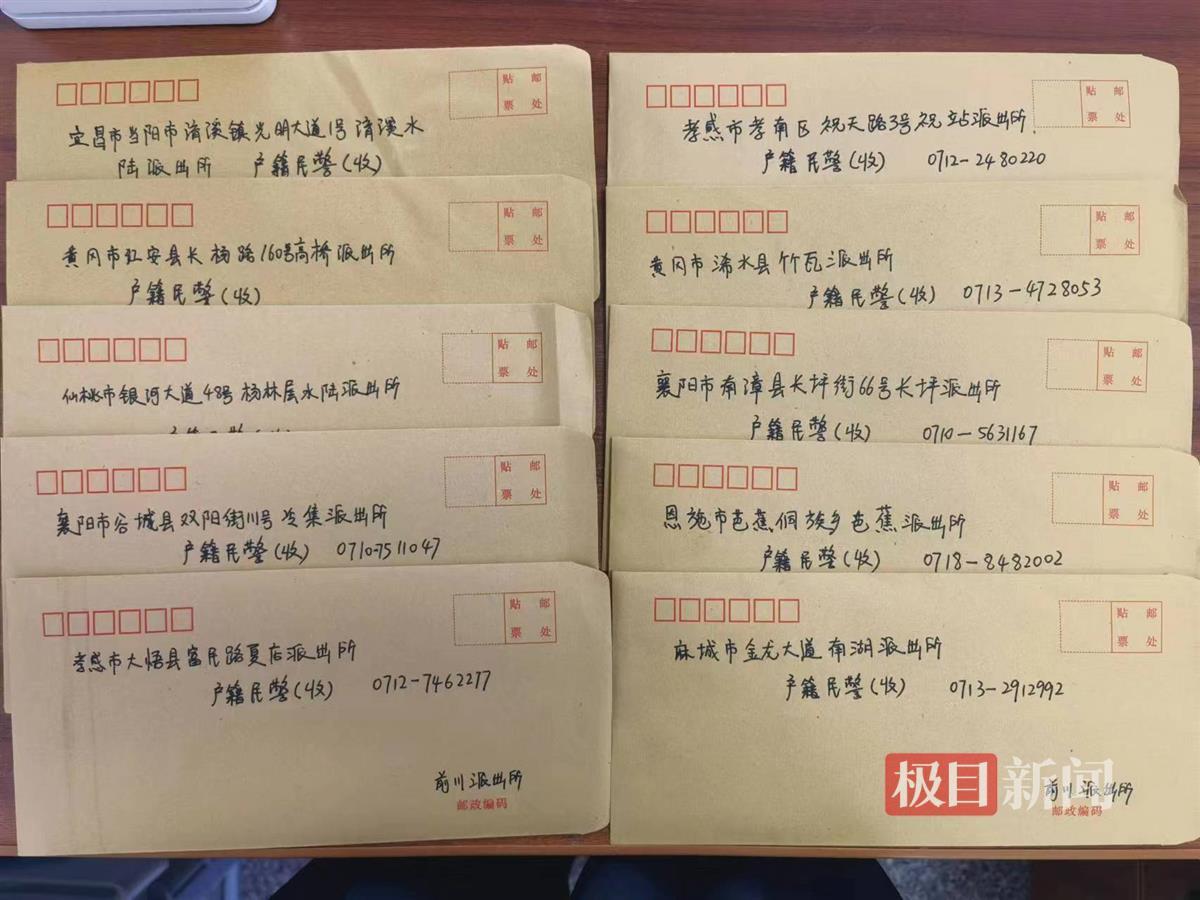 贴 邮
票 处
宜昌市当阳市淯溪镇光明大道1号淯溪水
陆派出所 户籍民警(收)
贴 邮
票 处
黄冈市红安县长杨路160号高桥派出所
户籍民警(收)
贴 邮
票 处
仙桃市银河大道48号杨林尾水陆派出所
贴 邮
票 处
襄阳市谷城县双阳街111号冷集派出所
户籍民警(收) 0710-7511047
贴 邮
票 处
孝感市大悟县富民路夏店派出所
户籍民警(收) 0712-7462277
前川派出所
邮政编码
贴 邮
票 处
孝感市孝南区祝天路3号祝站派出所
户籍民警(收) 0712-2480220
贴 邮
票 处
黄冈市浠水县竹瓦派出所
户籍民警(收) 0713-4728053
贴 邮
票 处
襄阳市南漳县长坪街66号长坪派出所
户籍民警(收) 0710-5631167
贴 邮
票 处
恩施市芭蕉侗族乡芭蕉派出所
户籍民警(收) 0718-8482002
贴 邮
票 处
麻城市金龙大道南湖派出所
户籍民警(收) 0713-2912992
前川派出所
邮政编码
极目新闻